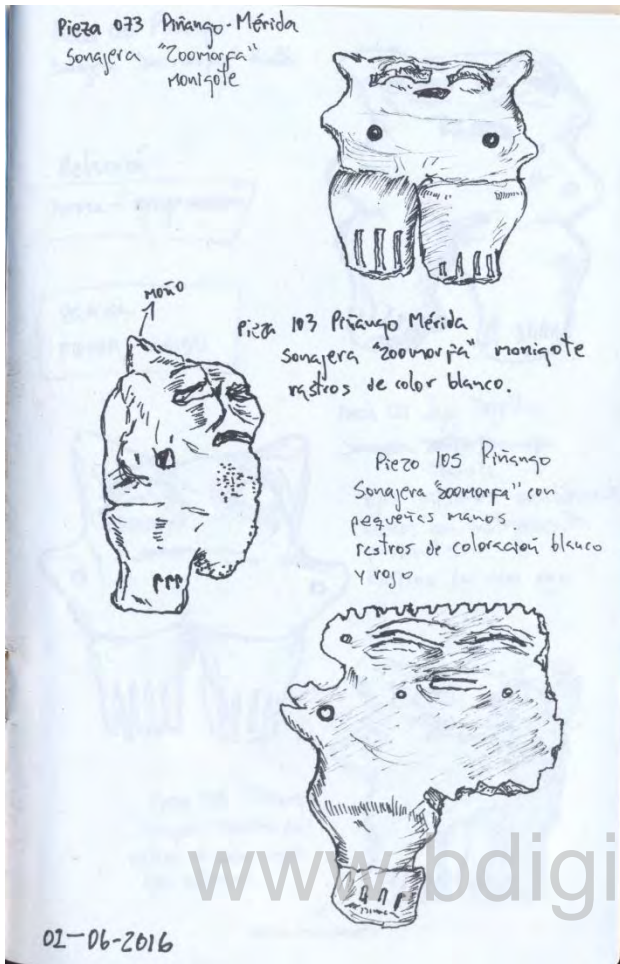 Pieza 073 Piñango-Mérida
Sonajera "Zoomorfa"
Monigote
MOÑO
Pieza 103 Piñango Mérida
Sonajera "zoomorfa" monigote
rastros de color blanco.
Piezo 105 Piñango
Sonajera "zoomorfa" con
pequeñas manos
rastros de coloración blanco
y rojo
www.bdigi
02-06-2016